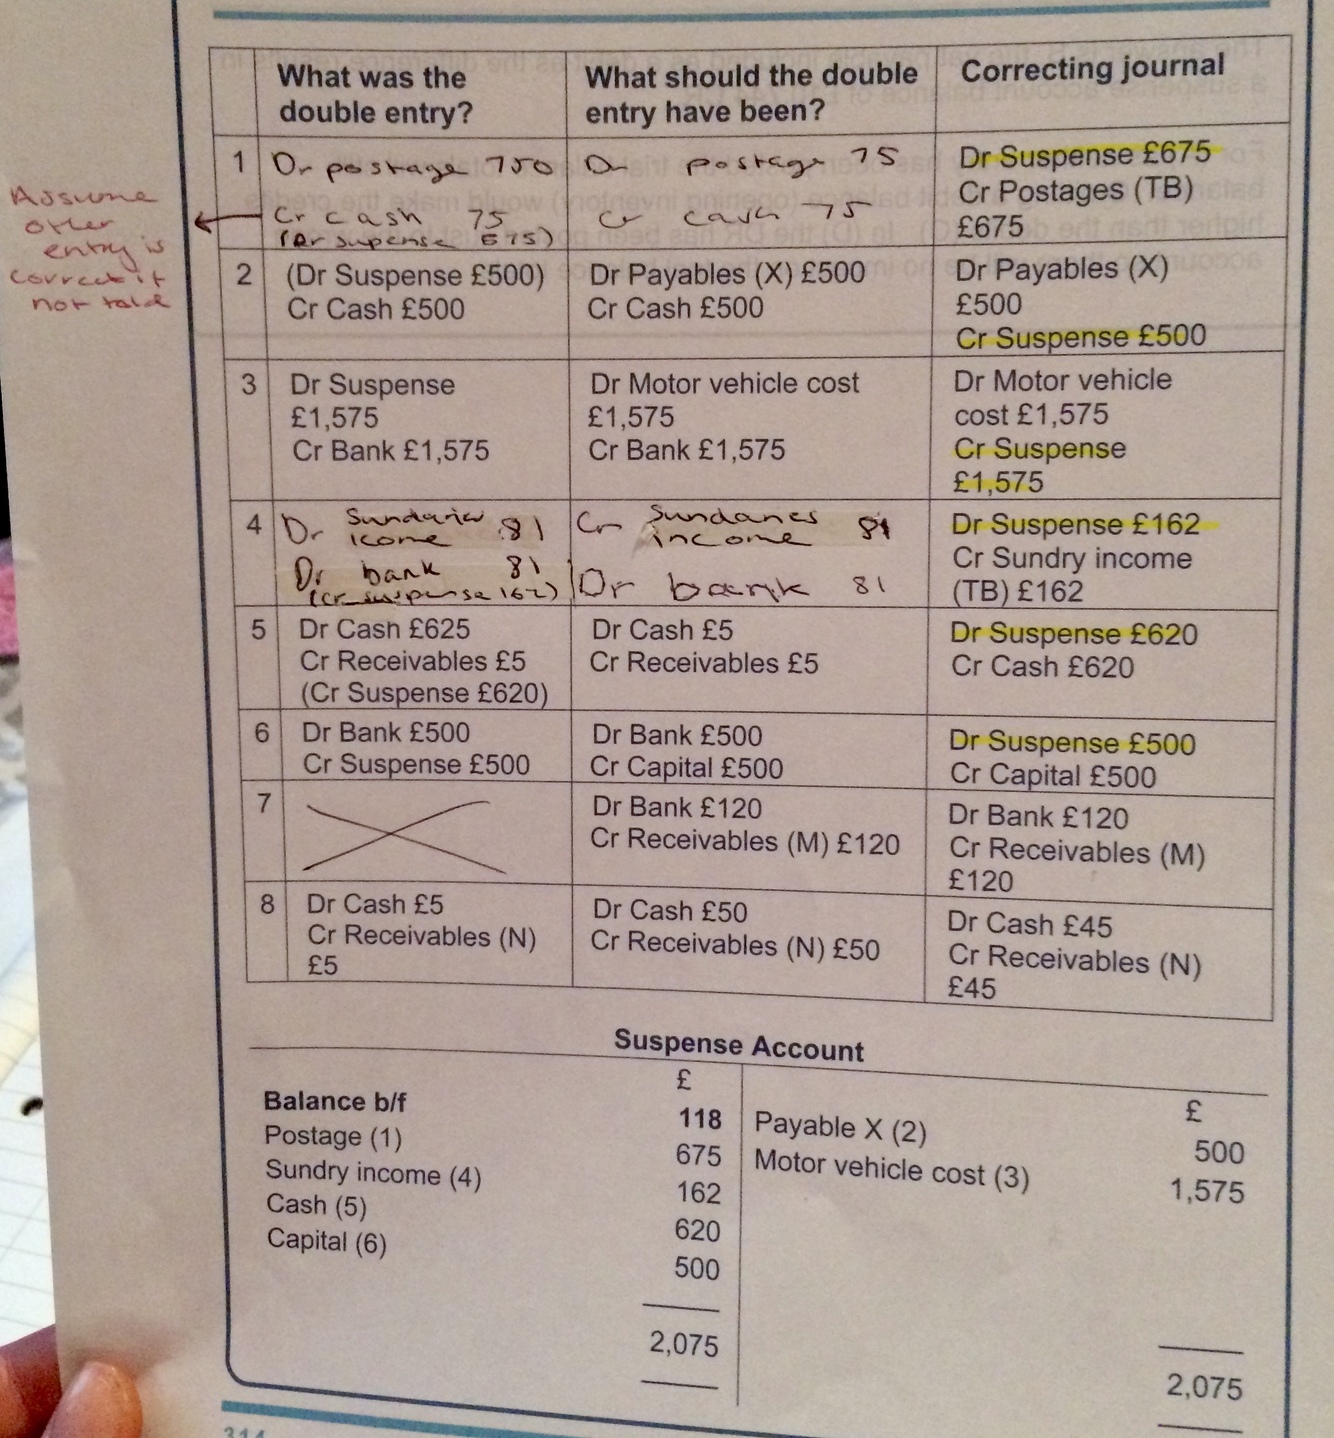 What was the
double entry?
What should the double
entry have been?
Correcting journal
1
Dr postage 750
Cr cash 75
(Dr supense 675)
Dr postage 75
Cr cash 75
Dr Suspense £675
Cr Postages (TB)
£675
Assume
other
entry is
correct if
not told
2
(Dr Suspense £500)
Cr Cash £500
Dr Payables (X) £500
Cr Cash £500
Dr Payables (X)
£500
Cr Suspense £500
3
Dr Suspense
£1,575
Cr Bank £1,575
Dr Motor vehicle cost
£1,575
Cr Bank £1,575
Dr Motor vehicle
cost £1,575
Cr Suspense
£1,575
4
Dr 81
icome
Dr bank 81
(cr suspense 162)
Cr Sundaries 81
income
Dr bank 81
Dr Suspense £162
Cr Sundry income
(TB) £162
5
Dr Cash £625
Cr Receivables £5
(Cr Suspense £620)
Dr Cash £5
Cr Receivables £5
Dr Suspense £620
Cr Cash £620
6
Dr Bank £500
Cr Suspense £500
Dr Bank £500
Cr Capital £500
Dr Suspense £500
Cr Capital £500
7
Dr Bank £120
Cr Receivables (M) £120
Dr Bank £120
Cr Receivables (M)
£120
8
Dr Cash £5
Cr Receivables (N)
£5
Dr Cash £50
Cr Receivables (N) £50
Dr Cash £45
Cr Receivables (N)
£45
Suspense Account
£
£
Balance b/f 118
Payable X (2) 500
Postage (1) 675
Motor vehicle cost (3) 1,575
Sundry income (4) 162
Cash (5) 620
Capital (6) 500
2,075
2,075
314